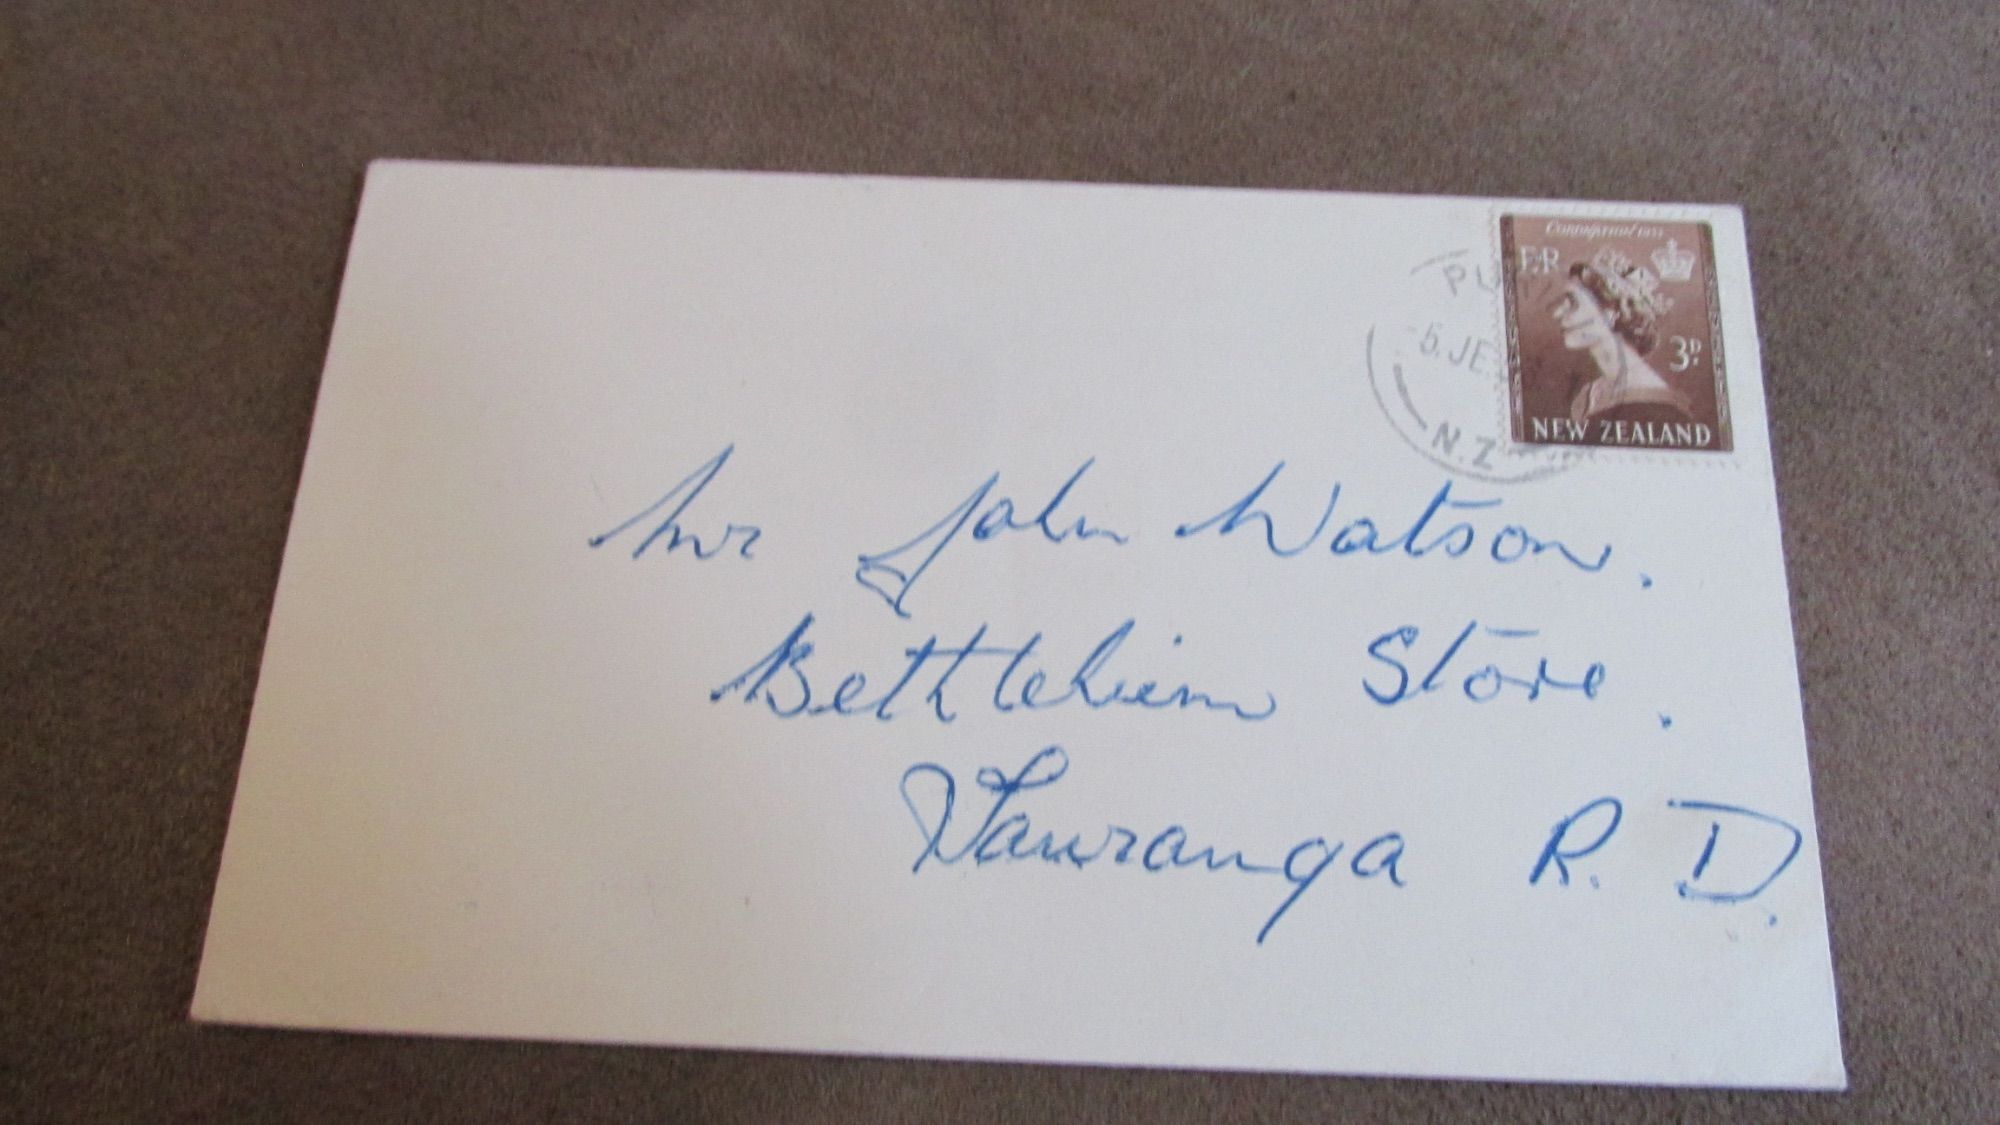 Coronation 1953
E R
3D.
NEW ZEALAND
5. JE
N.Z
Mr John Watson.
Bethlehem Store.
Tauranga R. D.